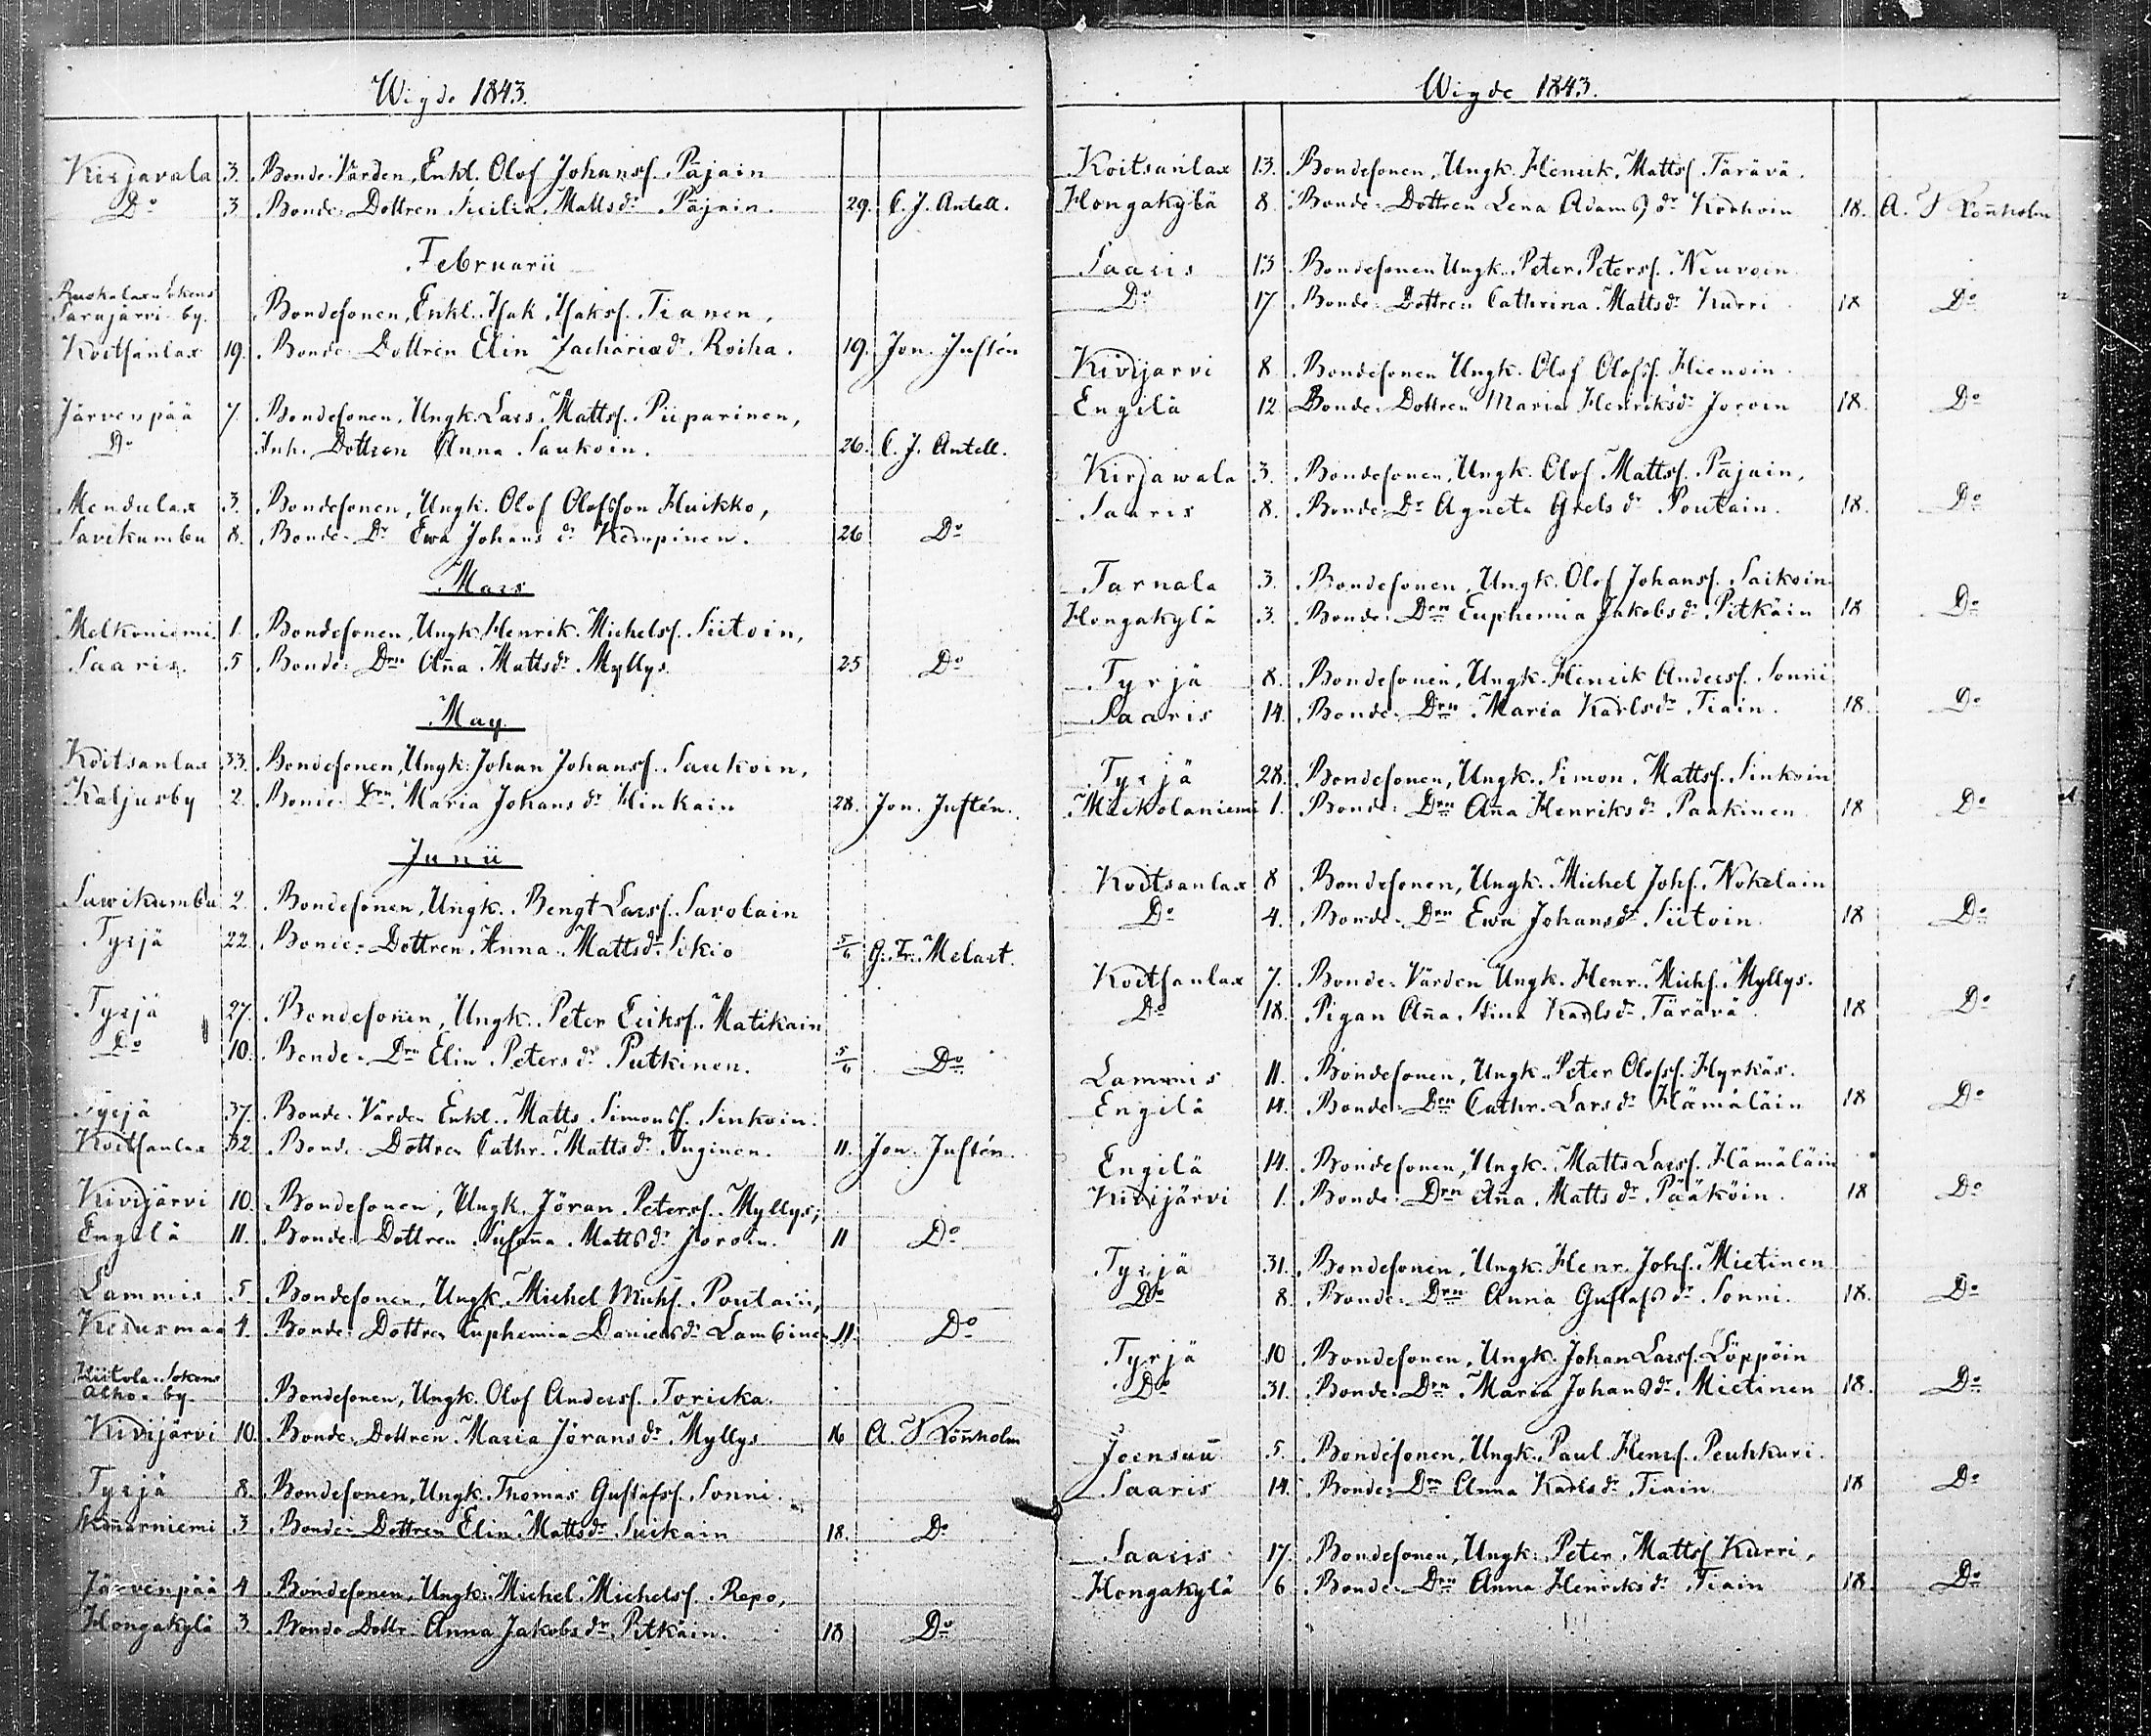 Wigde 1843.
Kirjavala 3. Bonde Värden, Enkl. Olof Johansf. Päjain
Do 3 Bonde Dottren Sicilia Mattsdr Päjain. 29. C. J. Antell.
Februarii
Ruskiala Sokens
Sarajärvi by. Bondesonen, Enkl. Isak Isaksf. Tianen,
Koitsanlax 19. Bonde Dottren Elin Zachariædr Roiha. 19. Jon. Juslén
Järvenpää 7. Bondesonen, Ungk. Lars Mattsf. Piiparinen,
Do Inh. Dottren Anna Saukoin. 26. C. J. Antell.
Mendulax 3. Bondesonen, Ungk. Olof Olofsson Huikko,
Savikumbu 8. Bonde Dr Ewa Johans dr Kempinen. 26 Do
Mars
Melkoniemi 1. Bondesonen, Ungk. Henrik Michelsf. Siitoin,
Saaris. 5 Bonde Drn Aña Mattsdr Myllys. 25 Do
May
Koitsanlax 33. Bondesonen, Ungk. Johan Johansf. Saukoin,
Kaljusby 2. Bonde Drn Maria Johans dr Hinkain 28. Jon. Juslén.
Junii
Sawikumbu 2. Bondesonen, Ungk. Bengt Larsf. Savolain
Tyrjä 22. Bonde Dottren Anna Mattsdr Sikiö 5/6 G. Fr. Melart.
Tyrjä 27. Bondesonen, Ungk. Peter Eriksf. Matikain
Do 10. Bonde Drn Elin Peters dr Putkinen. 5/6 Do
Tyrjä 37. Bonde Värden Enkl. Matts Simonsf. Sinkoin.
Koitsanlax 32. Bonde Dottren Cathr. Matts dr Inginen. 11. Jon. Juslén.
Kivijärvi 10. Bondesonen, Ungk. Jöran Petersf. Myllys,
Engilä 11. Bonde Dottren Susaña Matts dr Joroin. 11 Do
Lammis 5. Bondesonen, Ungk. Michel Michf. Poutain,
Kesusmaa 4. Bonde Dottren Euphemia Daniels dr Lambinen 11. Do
Hiitola Sokens
Alho by Bondesonen, Ungk. Olof Andersf. Toricka.
Kivijärvi 10. Bonde Dottren Maria Jörans dr Myllys 16 A. S Löñholm
Tyrjä 8. Bondesonen, Ungk. Thomas Gustafsf. Sonni.
Kiñarniemi 3 Bonde Dottren Elin Mattsdr Suikain 18. Do
Järvenpää 4 Bondesonen, Ungk. Michel Michelsf. Repo,
Hongakylä 3 Bonde Dottr. Anna Jakobs dr Pitkäin. 18 Do
Wigde 1843.
Koitsanlax 13. Bondesonen, Ungk. Henrik Mattsf. Tärävä.
Hongakylä 8 Bonde Dottren Lena Adams dr Korhoin 18. A. S Löñholm
Saaris 13 Bondesonen Ungk. Peter Petersf. Neuvoin
Do 17 Bonde Dottren Cathrina Mattsdr Kurri 18 Do
Kivijärvi 8 Bondesonen Ungk. Olof Olofsf. Hienoin.
Engilä 12 Bonde Dottren Maria Henriksdr Joroin 18. Do
Kirjawala 3. Bondesonen, Ungk. Olof Mattsf. Päjain,
Saaris 8. Bonde Dr Agneta Grels dr Poutain. 18. Do
Tarnala 3. Bondesonen, Ungk. Olof Johansf. Saikoin
Hongakylä 3. Bonde Drn Euphemia Jakobs dr Pitkäin 18 Do
Tyrjä 8. Bondesonen, Ungk. Henrik Andersf. Sonni
Saaris 14. Bonde Drn Maria Karlsdr Tiain. 18. Do
Tyrjä 28. Bondesonen, Ungk. Simon Mattsf. Sinkoin
Mickolaniemi 1. Bonde Drn Aña Henriks dr Paakinen 18 Do
Koitsanlax 8 Bondesonen, Ungk. Michel Johf. Nokelain
Do 4. Bonde Drn Ewa Johansdr Siitoin. 18 Do
Koitsanlax 7. Bonde Värden Ungk. Henr. Michf. Myllys.
Do 18. Pigan Aña Stina Karlsdr Tärävä. 18 Do
Lammis 11. Bondesonen, Ungk. Peter Olofsf. Hyrkäs.
Engilä 14. Bonde Drn Cathr. Lars dr Hämäläin 18 Do
Engilä 14. Bondesonen, Ungk. Matts Larsf. Hämäläin
Kivijärvi 1. Bonde Drn Aña Matts dr Pääköin. 18 Do
Tyrjä 31. Bondesonen, Ungk. Henr. Johf. Mietinen
Do 8. Bonde Drn Anna Gustafs dr Sonni. 18. Do
Tyrjä 10 Bondesonen, Ungk. Johan Larsf. Löppöin
Do 31. Bonde Drn Maria Johans dr Mietinen 18. Do
Joensuu 5. Bondesonen, Ungk. Paul Henrf. Peuhkuri.
Saaris 14. Bonde Drn Anna Karls dr Tiain 18 Do
Saaris 17. Bondesonen, Ungk. Peter Mattsf Kurri,
Hongakylä 6 Bonde Drn Anna Henriks dr Tiain 18 Do